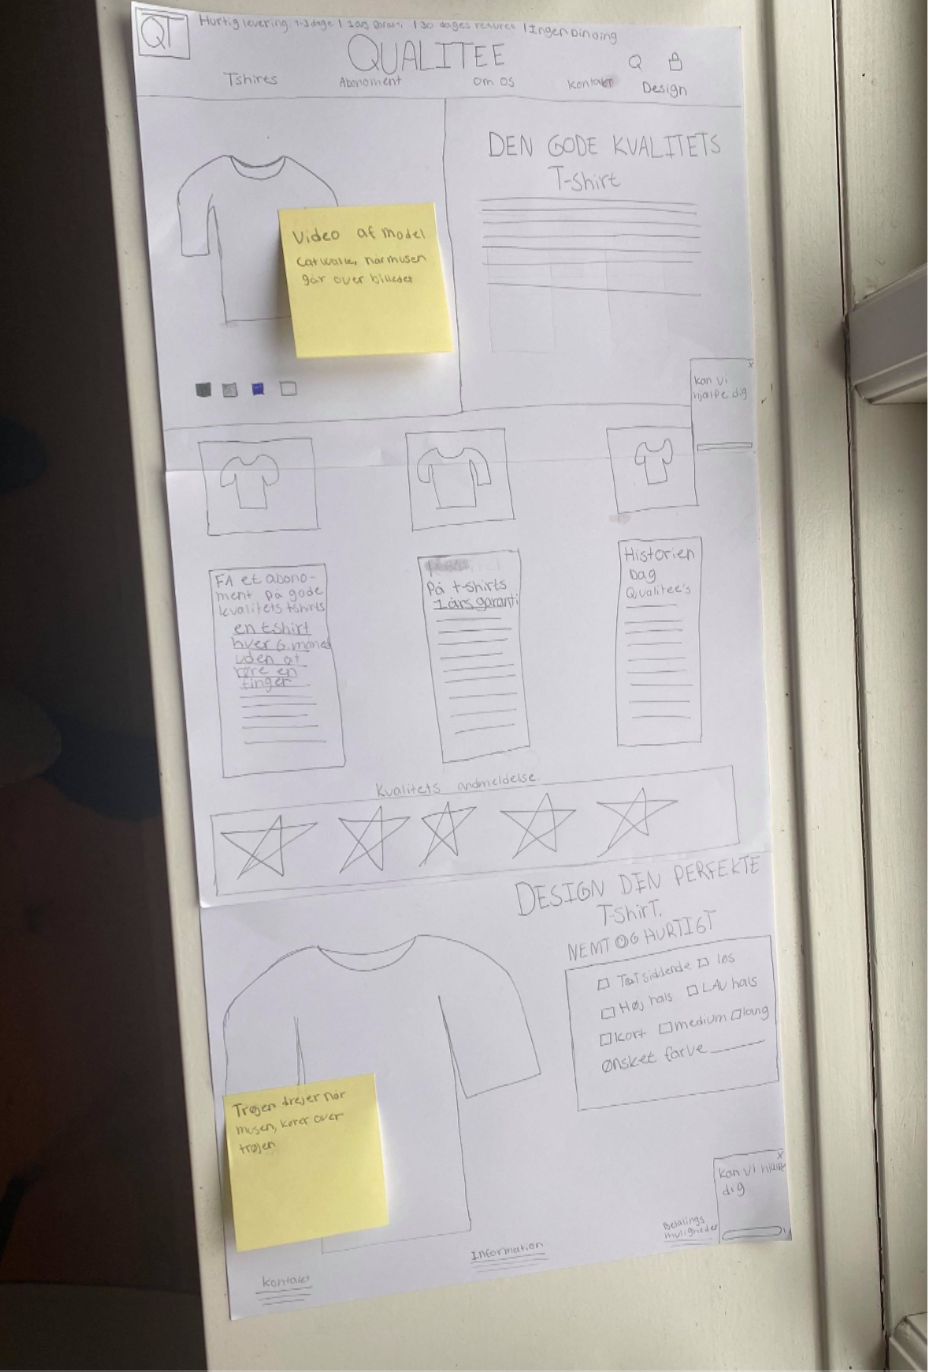 QT
Hurtig levering 1-3 dage | 1 års garanti | 30 dages returret | Ingen Binding
QUALITEE
Tshires
Abonoment
Om os
Kontakt
Design
DEN GODE KVALITETS
T-Shirt
Video af model
når musen
går over billedet
kan vi
hjælpe dig
x
FA et abono-
ment på gode
kvalitets tshirts
en tshirt
hver 6. måned
uden at
røre en
finger
På t-shirts
1 års garanti
Historien
Bag
Qualitee's
Kvalitets andmeldelse
DESIGN DIN PERFEKTE
T-ShirT.
NEMT OG HURTIGT
Tætsiddende
løs
Høj hals
LAV hals
kort
medium
lang
Ønsket farve
Trøjen drejer når
musen, kører over
trøjen
x
kan vi hjælpe
dig
Betalings
muligheder
Information
Kontakt